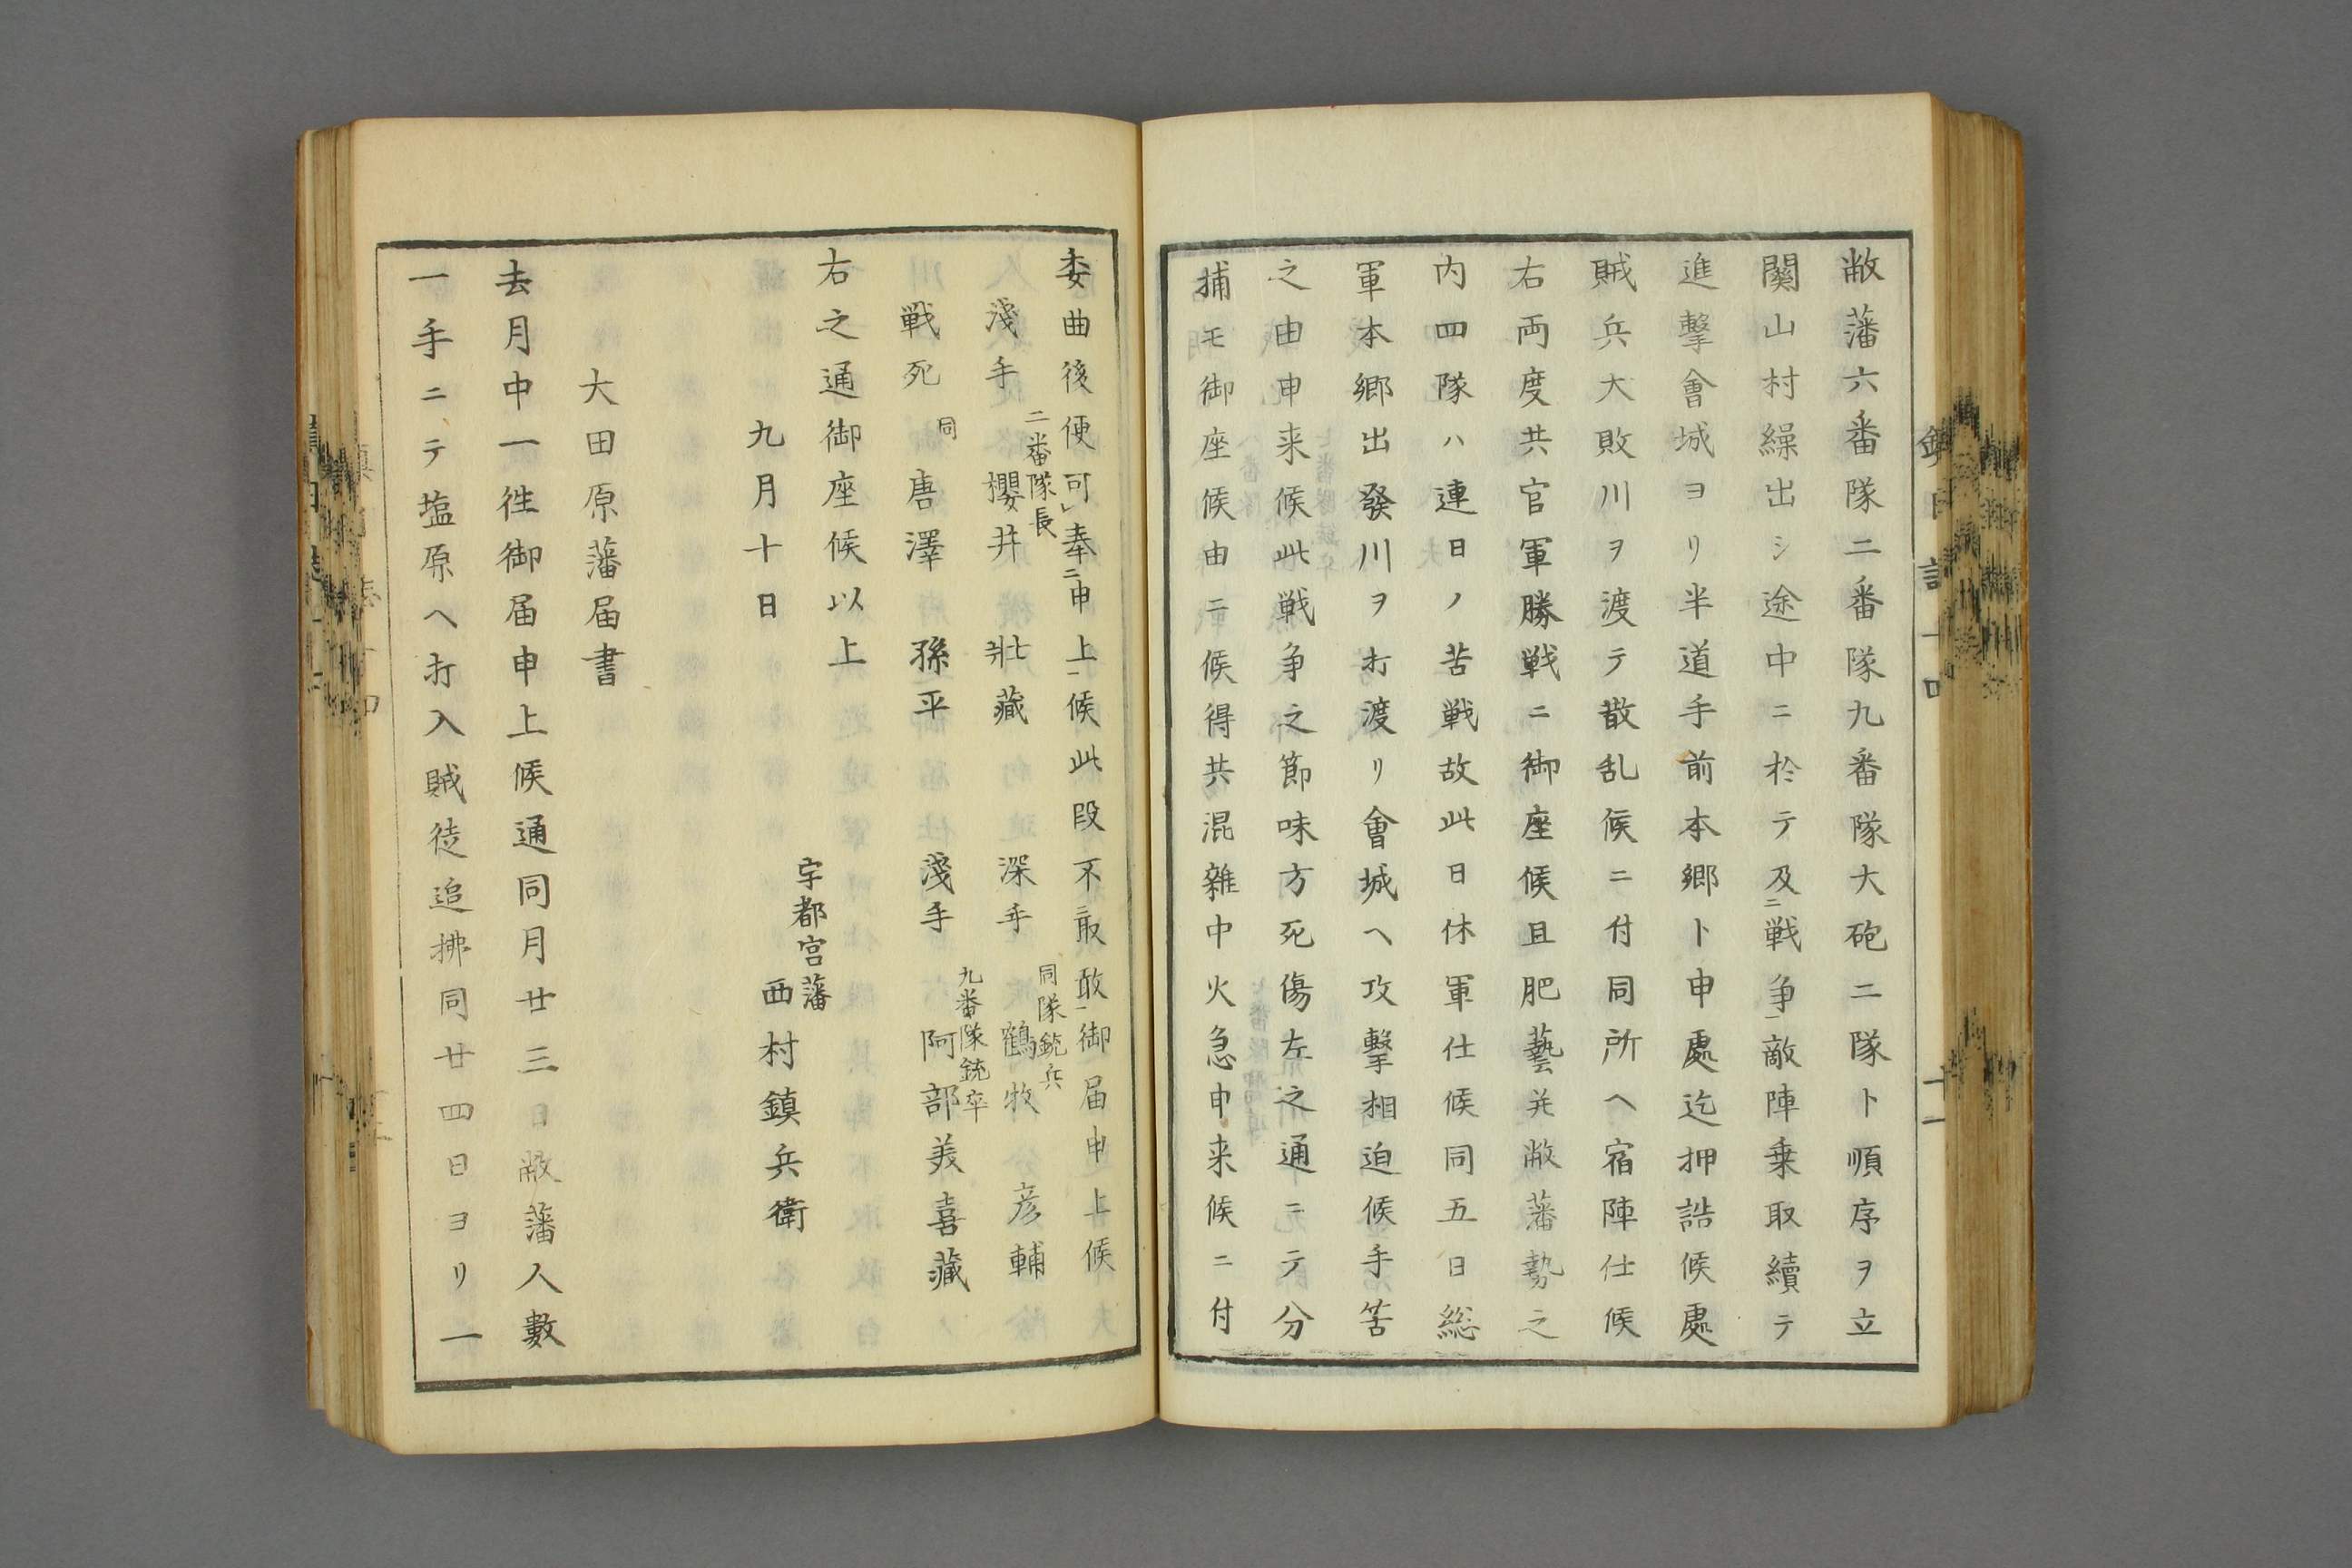 敝藩六番隊二番隊九番隊大砲二隊ト順序ヲ立
關山村繰出シ途中ニ於テ及二戦争一敵陣乗取續テ
進撃會城ヨリ半道手前本郷ト申處迄押詰候處
賊兵大敗川ヲ渡テ散乱候ニ付同所ヘ宿陣仕候
右両度共官軍勝戦ニ御座候且肥藝并敝藩勢之
内四隊ハ連日ノ苦戦故此日休軍仕候同五日総
軍本郷出發川ヲ打渡リ會城ヘ攻撃相迫候手筈
之由申来候此戦争之節味方死傷左之通ニテ分
捕モ御座候由ニ候得共混雜中火急申来候ニ付
委曲後便可レ奉二申上一候此段不二取敢一御届申上候
淺手 二番隊長 櫻井壯藏 深手 同隊銃兵 鶴牧彦輔
戦死 同 唐澤孫平 淺手 九番隊銃卒 阿部美喜藏
右之通御座候以上
九月十日
宇都宮藩
西村鎮兵衛
大田原藩届書
去月中一徃御届申上候通同月廿三日敝藩人數
一手ニテ塩原ヘ打入賊徒追拂同廿四日ヨリ一